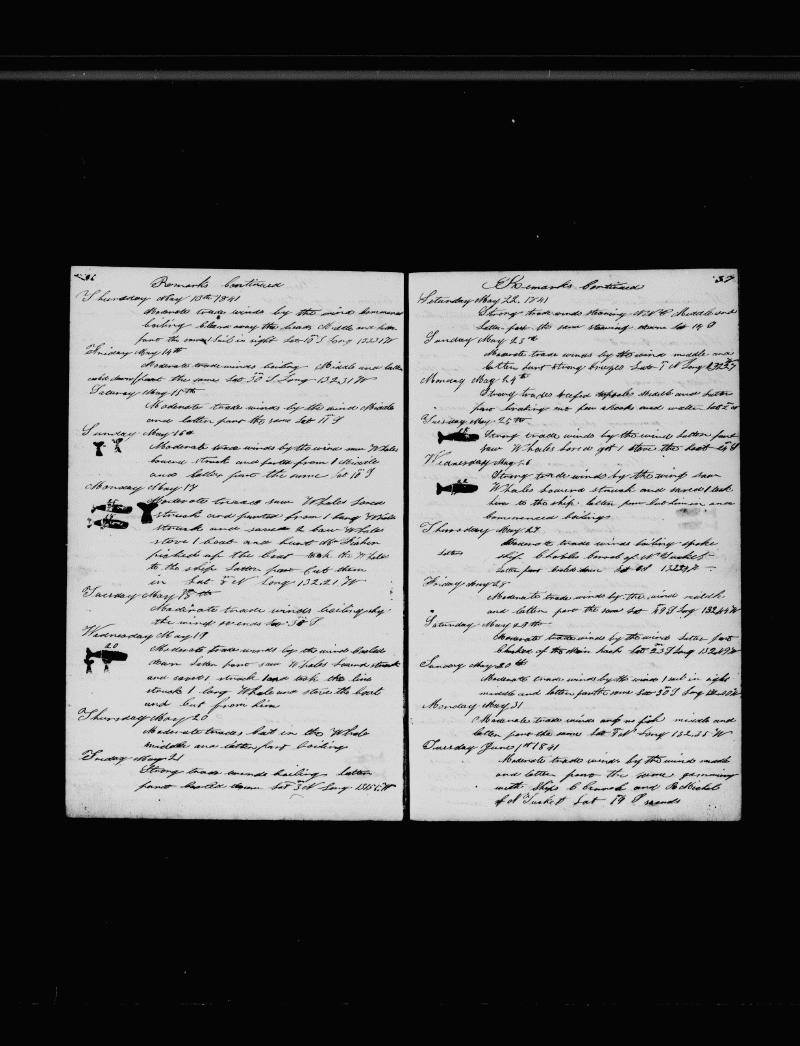 36
Remarks Continued
Thursday May 13th 1841
Moderate trade winds by the wind commenced
boiling Cleand away the heads Middle and latter
part the same 1 Sail in sight Lat Long 132.31 W
Friday May 14th
Moderate trade winds boiling Middle and latter
coold down part the same Lat Long 132.31 W
Saturday May 15th
Moderate trade winds by the wind Middle
and latter part the same Lat
Sunday May 16th
Moderate trade winds by the wind saw Whales
lowerd struck and parted from 1 Middle
and latter part the same Lat
Monday May 17
Moderate trades saw Whales lowed
struck and parted from 1 large Whale
struck and saved 2 saw Whales
stove 1 boat and hurt Mr Fisher
picked up the boat took the Whale
to the ship latter part Cut them
in Lat N Long 132.21 W
Tuesday May 18th
Moderate trade winds boiling by
the wind so ends Lat
Wednesday May 19
20
Moderate trade winds by the wind cooled
down latter part saw Whales lowerd struck
and saved 1 struck 1 and took the line
struck 1 large Whale and stove the boat
and cut from him
Thursday May 20
Moderate trades Cut in the Whale
middle and latter part boiling
Friday May 21
Strong trade winds boiling latter
part cooled down Lat N Long W
37
Remarks Continued
Saturday May 22. 1841
Strong trade winds steering Middle and
latter part the same steering Lat
Sunday May 23rd
Moderate trade winds by the wind middle and
latter part strong breezes Lat N Long
Monday May 24th
Strong trades reefed topsails Middle and latter
part breaking out for and water Lat
Tuesday May 25th
Strong trade winds by the wind latter part
saw Whales lowed got 1 stove the boat
Wednesday May 26
Strong trade winds by the wind saw
Whales lowerd struck and saved 1 took
him to the ship latter part cut him in and
commenced boiling
Thursday May 27
Moderate trade winds boiling spoke
ship Charles Carrol of Nantucket
latter part coold down Lat
Friday May 28
Moderate trade winds by the wind middle
and latter part the same Lat S Long 132.44 W
Saturday May 29th
Moderate trade winds by the wind latter part
of the Main hach Lat S Long 132.49 W
Sunday May 30th
Moderate trade winds by the wind 1 sail in sight
middle and latter part the same Lat S Long
Monday May 31
Moderate trade winds no fish middle and
latter part the same Lat N Long 132.35 W
Tuesday June 1st 1841
Moderate trade winds by the wind middle
and latter part the same gamming
with Ships C Carrol and
of Nantucket Lat S so ends